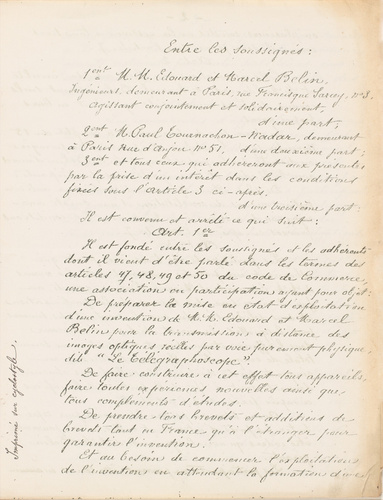 Entre les soussignés:
1ent M.M. Edouard et Marcel Belin,
Ingénieurs, demeurant à Paris, rue Francisque Sarcey, n°8,
agissant conjointement et solidairement,
d'une part,
2ent M. Paul Tournachon-Nadar, demeurant
à Paris rue d'Anjou n° 51. d'un deuxième part;
3ent et tous ceux qui adhéreront aux présentes
par la prise d'un intérêt dans les conditions
fixées sous l'article 3 ci-après,
d'une troisième part:
Il est convenu et arrêté ce qui suit:
Art. 1er
Il est fondé entre les soussignés et les adhérents
dont il vient d'être parlé dans les termes des
articles 47, 48, 49 et 50 du code de Commerce,
une association en participation ayant pour objet:
De préparer la mise en état d'exploitation
d'une invention de M.M. Edouard et Marcel
Belin pour la transmission à distance des
images optiques réelles par voie purement physique
dite "Le Télégraphoscope".
De faire construire à cet effet tous appareils,
faire toutes expériences nouvelles ainsi que
tous compléments d'études.
De prendre tous brevets et additions de
brevets tant en France qu'à l'étranger pour
garantir l'invention.
Et au besoin de commencer l'exploitation
de l'invention en attendant la formation d'une
Imprimé sur